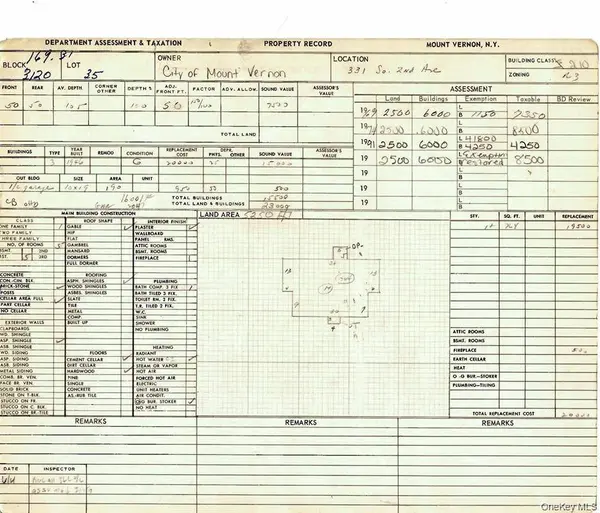 DEPARTMENT ASSESSMENT & TAXATION PROPERTY RECORD MOUNT VERNON, N.Y.
169.81
BLOCK 3120 LOT 35
OWNER
City of Mount Vernon
LOCATION
331 So. 2nd Ave
BUILDING CLASS 210
ZONING R3
FRONT REAR AV. DEPTH CORNER OTHER DEPTH % ADJ. FRONT FT. FACTOR ADV. ALLOW. SOUND VALUE ASSESSOR'S VALUE
50 50 105 50 7500
TOTAL LAND
ASSESSMENT
Land Buildings Exemption Taxable BD Review
2500 6000 L B 1150 7350
2500 6000 L B 8500
2500 6000 L 41800 B 4250 4250
19 2500 6000 L Exemption B restored 8500
19 L B
BUILDINGS TYPE YEAR BUILT REMOD CONDITION REPLACEMENT COST DEPR. PHYS. OTHER SOUND VALUE ASSESSOR'S VALUE
3 G 20000 25 15000
OUT BLDG SIZE AREA UNIT
garage 10x19 190 950 500
TOTAL BUILDINGS 15500
TOTAL LAND & BUILDINGS 23000
MAIN BUILDING CONSTRUCTION
LAND AREA 5250
CLASS
ONE FAMILY
TWO FAMILY
THREE FAMILY
NO. OF ROOMS 5
BSMT. 2ND
1ST. 5 3RD
CONCRETE
CON.-CIN. BLK.
BRICK-STONE
POSTS
CELLAR AREA FULL
PART CELLAR
NO CELLAR
EXTERIOR WALLS
CLAPBOARDS
WD. SHINGLE
ASP. SHINGLE
ASB. SHINGLE
WD. SIDING
ASP. SIDING
ASB. SIDING
METAL SIDING
COMB. BR. VEN.
FACE BR. VEN.
SOLID BRICK
STONE ON T-BLK.
STUCCO ON FR.
STUCCO ON C. BLK.
STUCCO ON BR-TILE
ROOF SHAPE
GABLE
HIP
FLAT
GAMBREL
MANSARD
DORMERS
FULL DORMER
ROOFING
ASPH. SHINGLES
WOOD SHINGLES
ASBES. SHINGLES
SLATE
TILE
METAL
COMP.
BUILT UP
FLOORS
CEMENT CELLAR
DIRT CELLAR
HARDWOOD
PINE
SINGLE
CONCRETE
AS.-RUB TILE
INTERIOR FINISH
PLASTER
WALLBOARD
PANEL RMS.
ATTIC ROOMS
BSMT. ROOMS
FIREPLACE
PLUMBING
BATH COMP. 3 FIX.
BATH TILED 3 FIX.
TOILET RM. 2 FIX.
T.R. TILED 2 FIX.
W.C.
SINK
SHOWER
NO PLUMBING
HEATING
RADIANT
HOT WATER
STEAM OR VAPOR
HOT AIR
FORCED HOT AIR
ELECTRIC
UNIT HEATERS
AIR CONDIT.
O-G BUR. STOKER
NO HEAT
STY. SQ. FT. UNIT REPLACEMENT
19500
ATTIC ROOMS
BSMT. ROOMS
FIREPLACE
EARTH CELLAR
HEAT
O-G BUR.-STOKER
PLUMBING-TILING
TOTAL REPLACEMENT COST 20000
REMARKS REMARKS REMARKS
DATE INSPECTOR
OneKey MLS